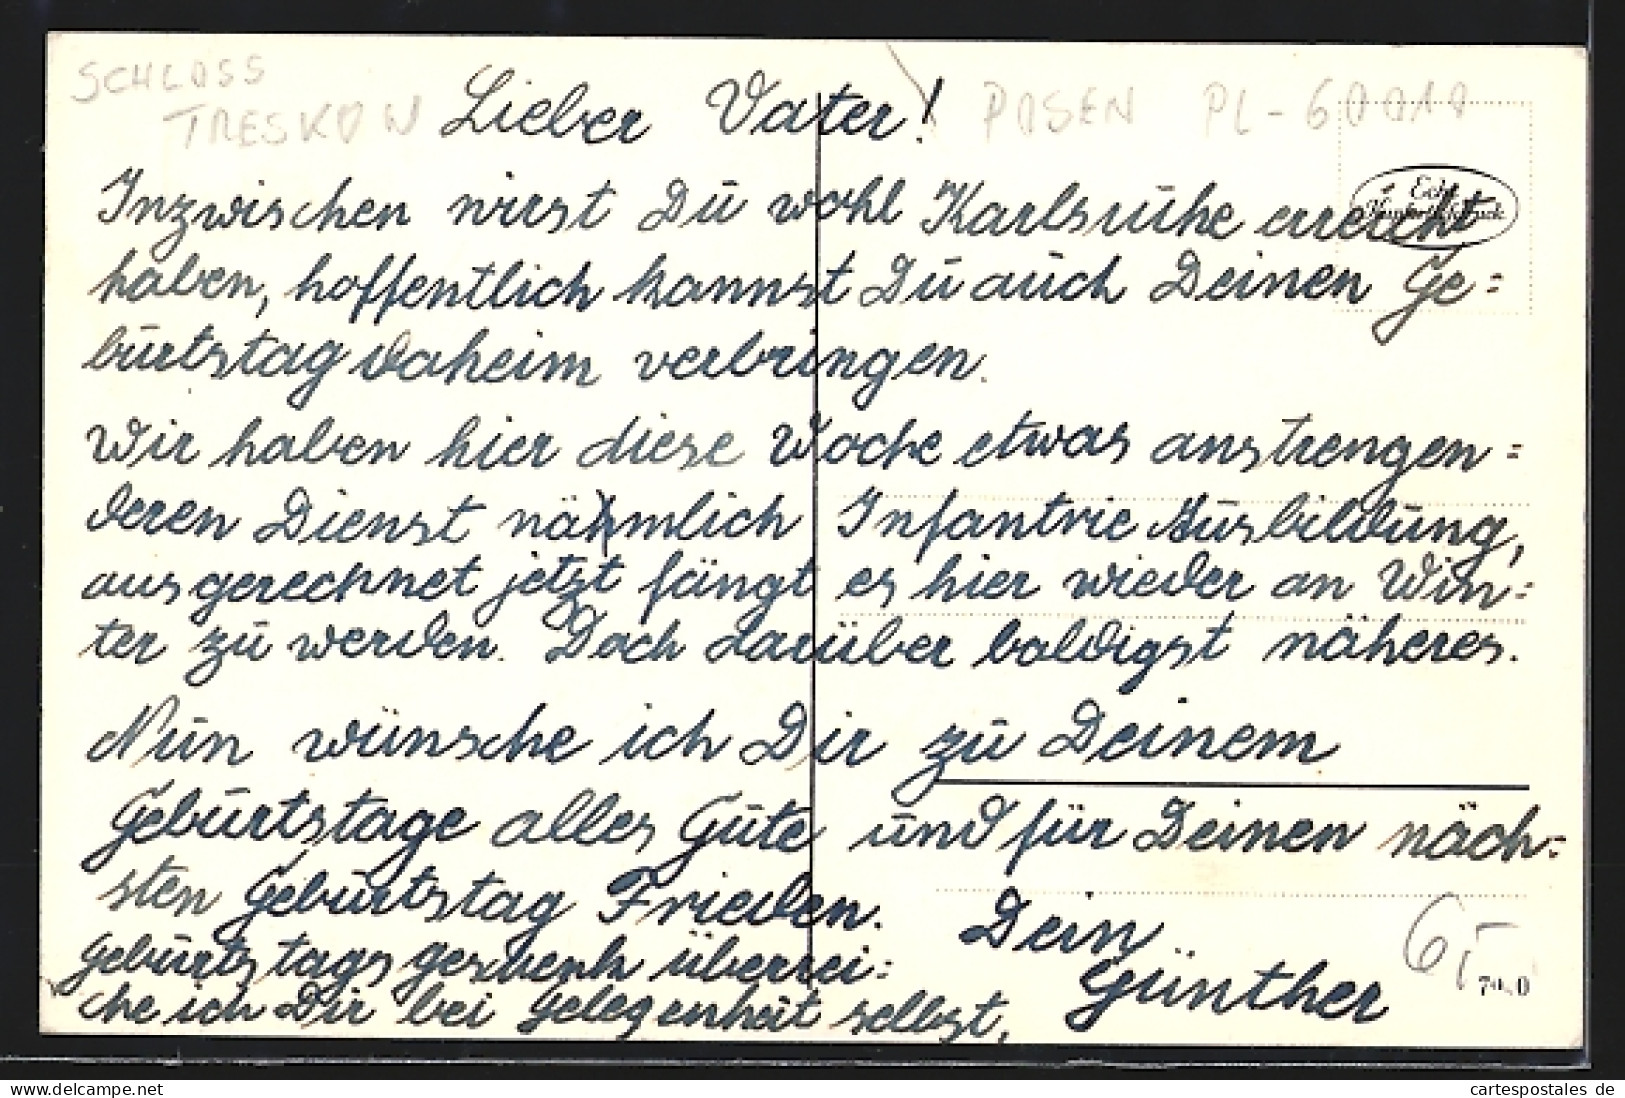 SCHLOSS
TRESKOW
POSEN PL-60010
Lieber Vater!
Echt
Kupfertiefdruck
Inzwischen wirst Du wohl Karlsruhe erreicht
haben, hoffentlich kannst Du auch Deinen Ge=
burtstag daheim verbringen.
Wir haben hier diese Woche etwas anstrengen=
deren Dienst nämlich Infantrie Ausbildung,
ausgerechnet jetzt fängt es hier wieder an Win=
ter zu werden. Doch darüber baldigst näheres.
Nun wünsche ich Dir zu Deinem
Geburtstage alles Gute und für Deinen näch=
sten Geburtstag Frieden. Dein
Günther
Geburtstagsgeschenk überrei=
che ich Dir bei Gelegenheit selbst.
hdl-wbarchiv @ delcampe.net
cartespostales de